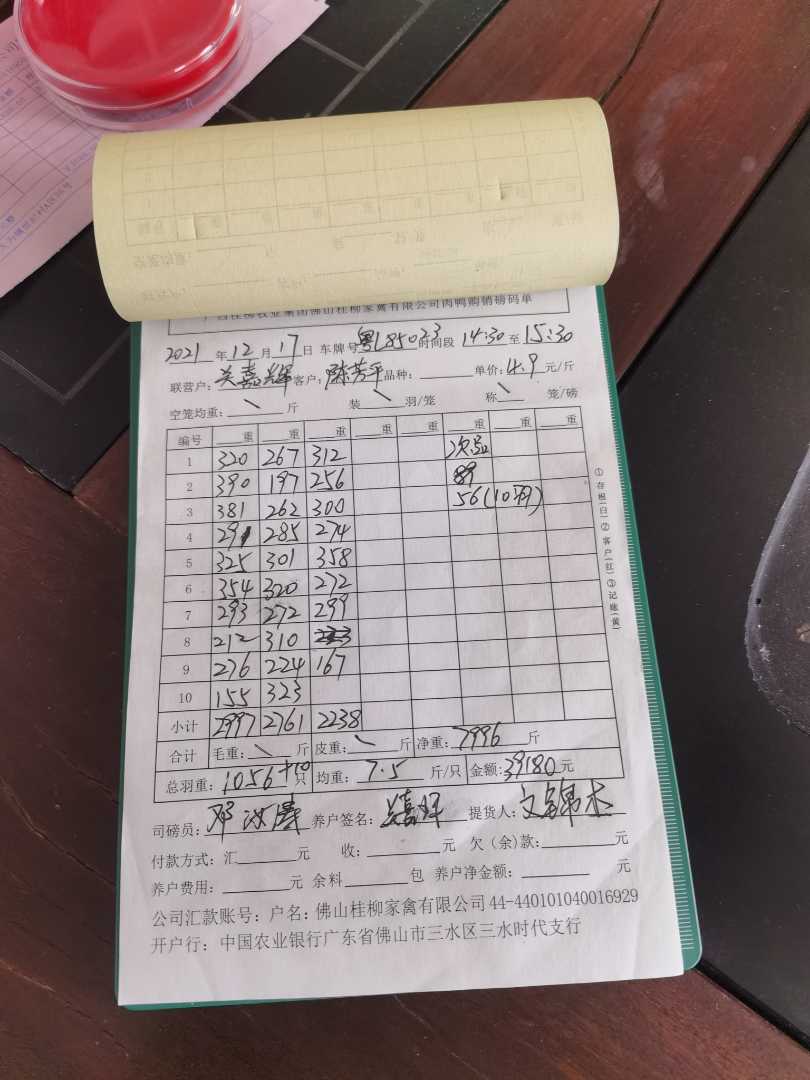 广西桂柳牧业集团佛山桂柳家禽有限公司肉鸭购销磅码单
2021年12月17日 车牌号粤L85023时间段 14:30至15:30
联营户：关嘉辉 客户：陈芳平 品种： 单价：4.9元/斤
空笼均重：\斤 装\羽/笼 称\笼/磅
编号 重 重 重 重 重 重 重 重
1 320 267 312 次品
2 390 197 256 89
3 381 262 300 56(10羽)
4 291 285 274
5 325 301 358
6 354 320 272
7 293 272 299
8 212 310
9 276 224 167
10 155 323
小计 2997 2761 2238
合计 毛重：\斤 皮重：\斤 净重：7996斤
总羽重：1056+10只 均重：7.5斤/只 金额：39180元
司磅员：邓 养户签名：关嘉辉 提货人：文锦
付款方式：汇 元 收： 元 欠（余）款： 元
养户费用： 元 余料 包 养户净金额： 元
公司汇款账号：户名：佛山桂柳家禽有限公司 44-440101040016929
开户行：中国农业银行广东省佛山市三水区三水时代支行
①存根(白)②客户(红)③记账(黄)